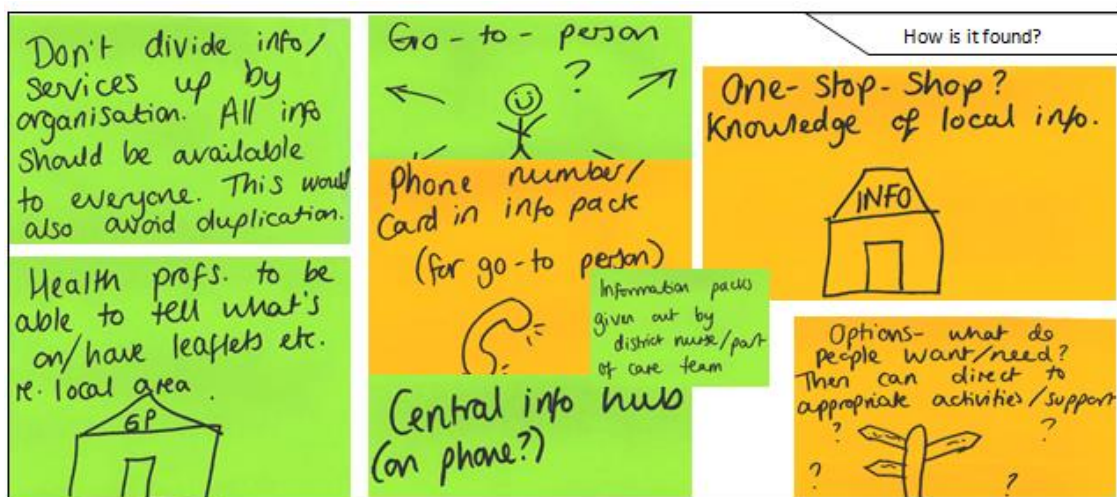 How is it found?
Don't divide info/
services up by
organisation. All info
should be available
to everyone. This would
also avoid duplication.
Health profs. to be
able to tell what's
on/have leaflets etc.
re. local area.
GP
Go-to-person
?
Phone number/
Card in info pack
(for go-to person)
Information packs
given out by
district nurse/part
of care team
Central info hub
(on phone?)
One-stop-shop?
Knowledge of local info.
INFO
Options- what do
people want/need?
Then can direct to
appropriate activities/support
? ?
? ?